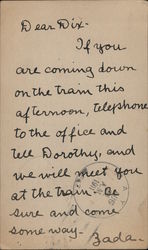 Dear Dix-
If you
are coming down
on the train this
afternoon, telephone
to the office and
tell Dorothy, and
we will meet you
at the train. Be
sure and come
some way-
Zada.